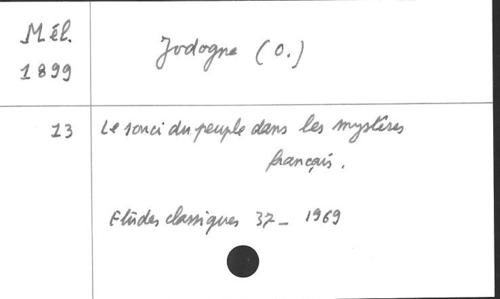 Mél.
1899
Jodogne (O.)
13
Le souci du peuple dans les mystères
français.
Etudes classiques 37 - 1969